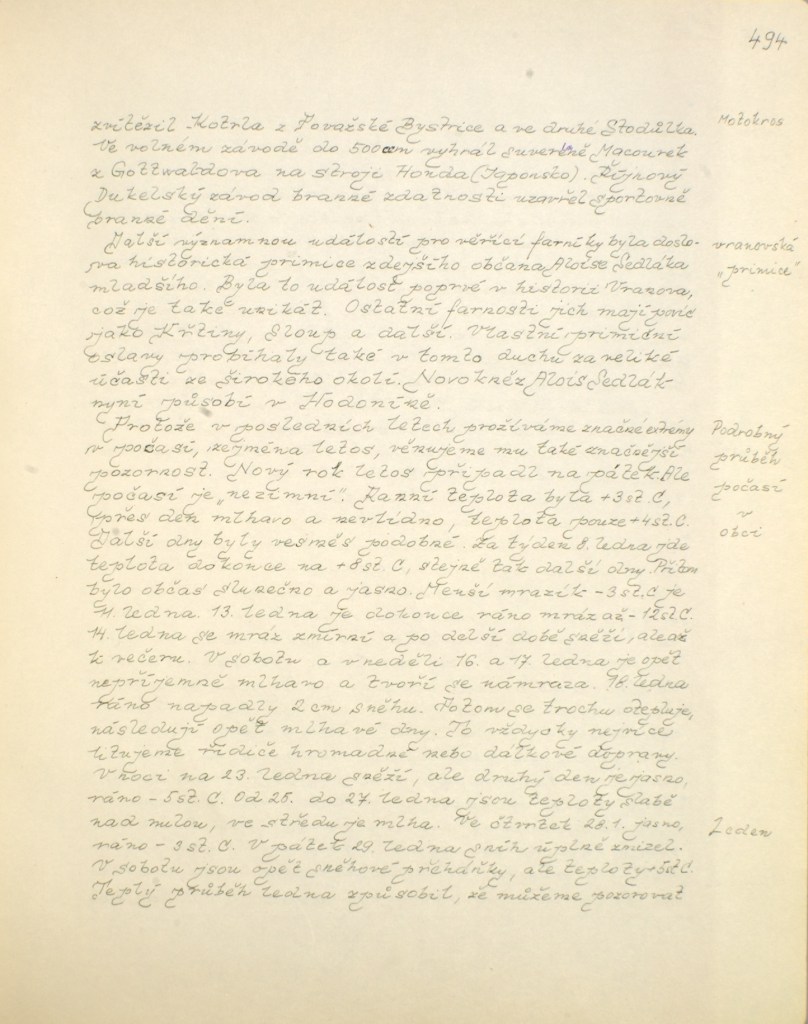 494
Motokros
zvítězil Kotrla z Považské Bystrice a ve druhé Stodůlka.
Ve volném závodě do 500ccm vyhrál suverénně Macourek
z Gottwaldova na stroji Honda (Japonsko). Říjnový
Dukelský závod branné zdatnosti uzavřel sportovně
branné dění.
vranovská
„primice"
Další významnou událostí pro věřící farníky byla doslo-
va historická primice zdejšího občana Aloise Sedláka
mladšího. Byla to událost poprvé v historii Vranova,
což je také unikát. Ostatní farnosti jich mají povíc
jako Křtiny, Sloup a další. Vlastní primiční
oslavy probíhaly také v tomto duchu za veliké
účasti ze širokého okolí. Novokněz Alois Sedlák
nyní působí v Hodoníně.
Podrobný
průběh
počasí
v
obci
Protože v posledních letech prožíváme značné extremy
v počasí, zejména letos, věnujeme mu také značnější
pozornost. Nový rok letos připadl na pátek. Ale
počasí je „nezimní". Ranní teplota byla +3 st. C,
přes den mlhavo a nevlídno, teplota pouze +4 st. C.
Další dny byly vesměs podobné. Za týden 8. ledna jde
teplota dokonce na +8 st. C, stejně tak další dny. Přitom
bylo občas slunečno a jasno. Menší mrazík -3 st. C je
11. ledna. 13. ledna je dokonce ráno mráz až -12 st. C.
14. ledna se mráz zmírní a po delší době sněží, ale až
k večeru. V sobotu a v neděli 16. a 17. ledna je opět
nepříjemně mlhavo a tvoří se námraza. 18. ledna
ráno napadly 2 cm sněhu. Potom se trochu otepluje,
následují opět mlhavé dny. To vždycky nejvíce
litujeme řidiče hromadné nebo dálkové dopravy.
V noci na 23. ledna sněží, ale druhý den je jasno,
ráno -5 st. C. Od 25. do 27. ledna jsou teploty slabě
Leden
nad nulou, ve středu je mlha. Ve čtvrtek 28.1. jasno,
ráno -3 st. C. V pátek 29. ledna sníh úplně zmizel.
V sobotu jsou opět sněhové přeháňky, ale teploty +5 st C.
Teplý průběh ledna způsobil, že můžeme pozorovat